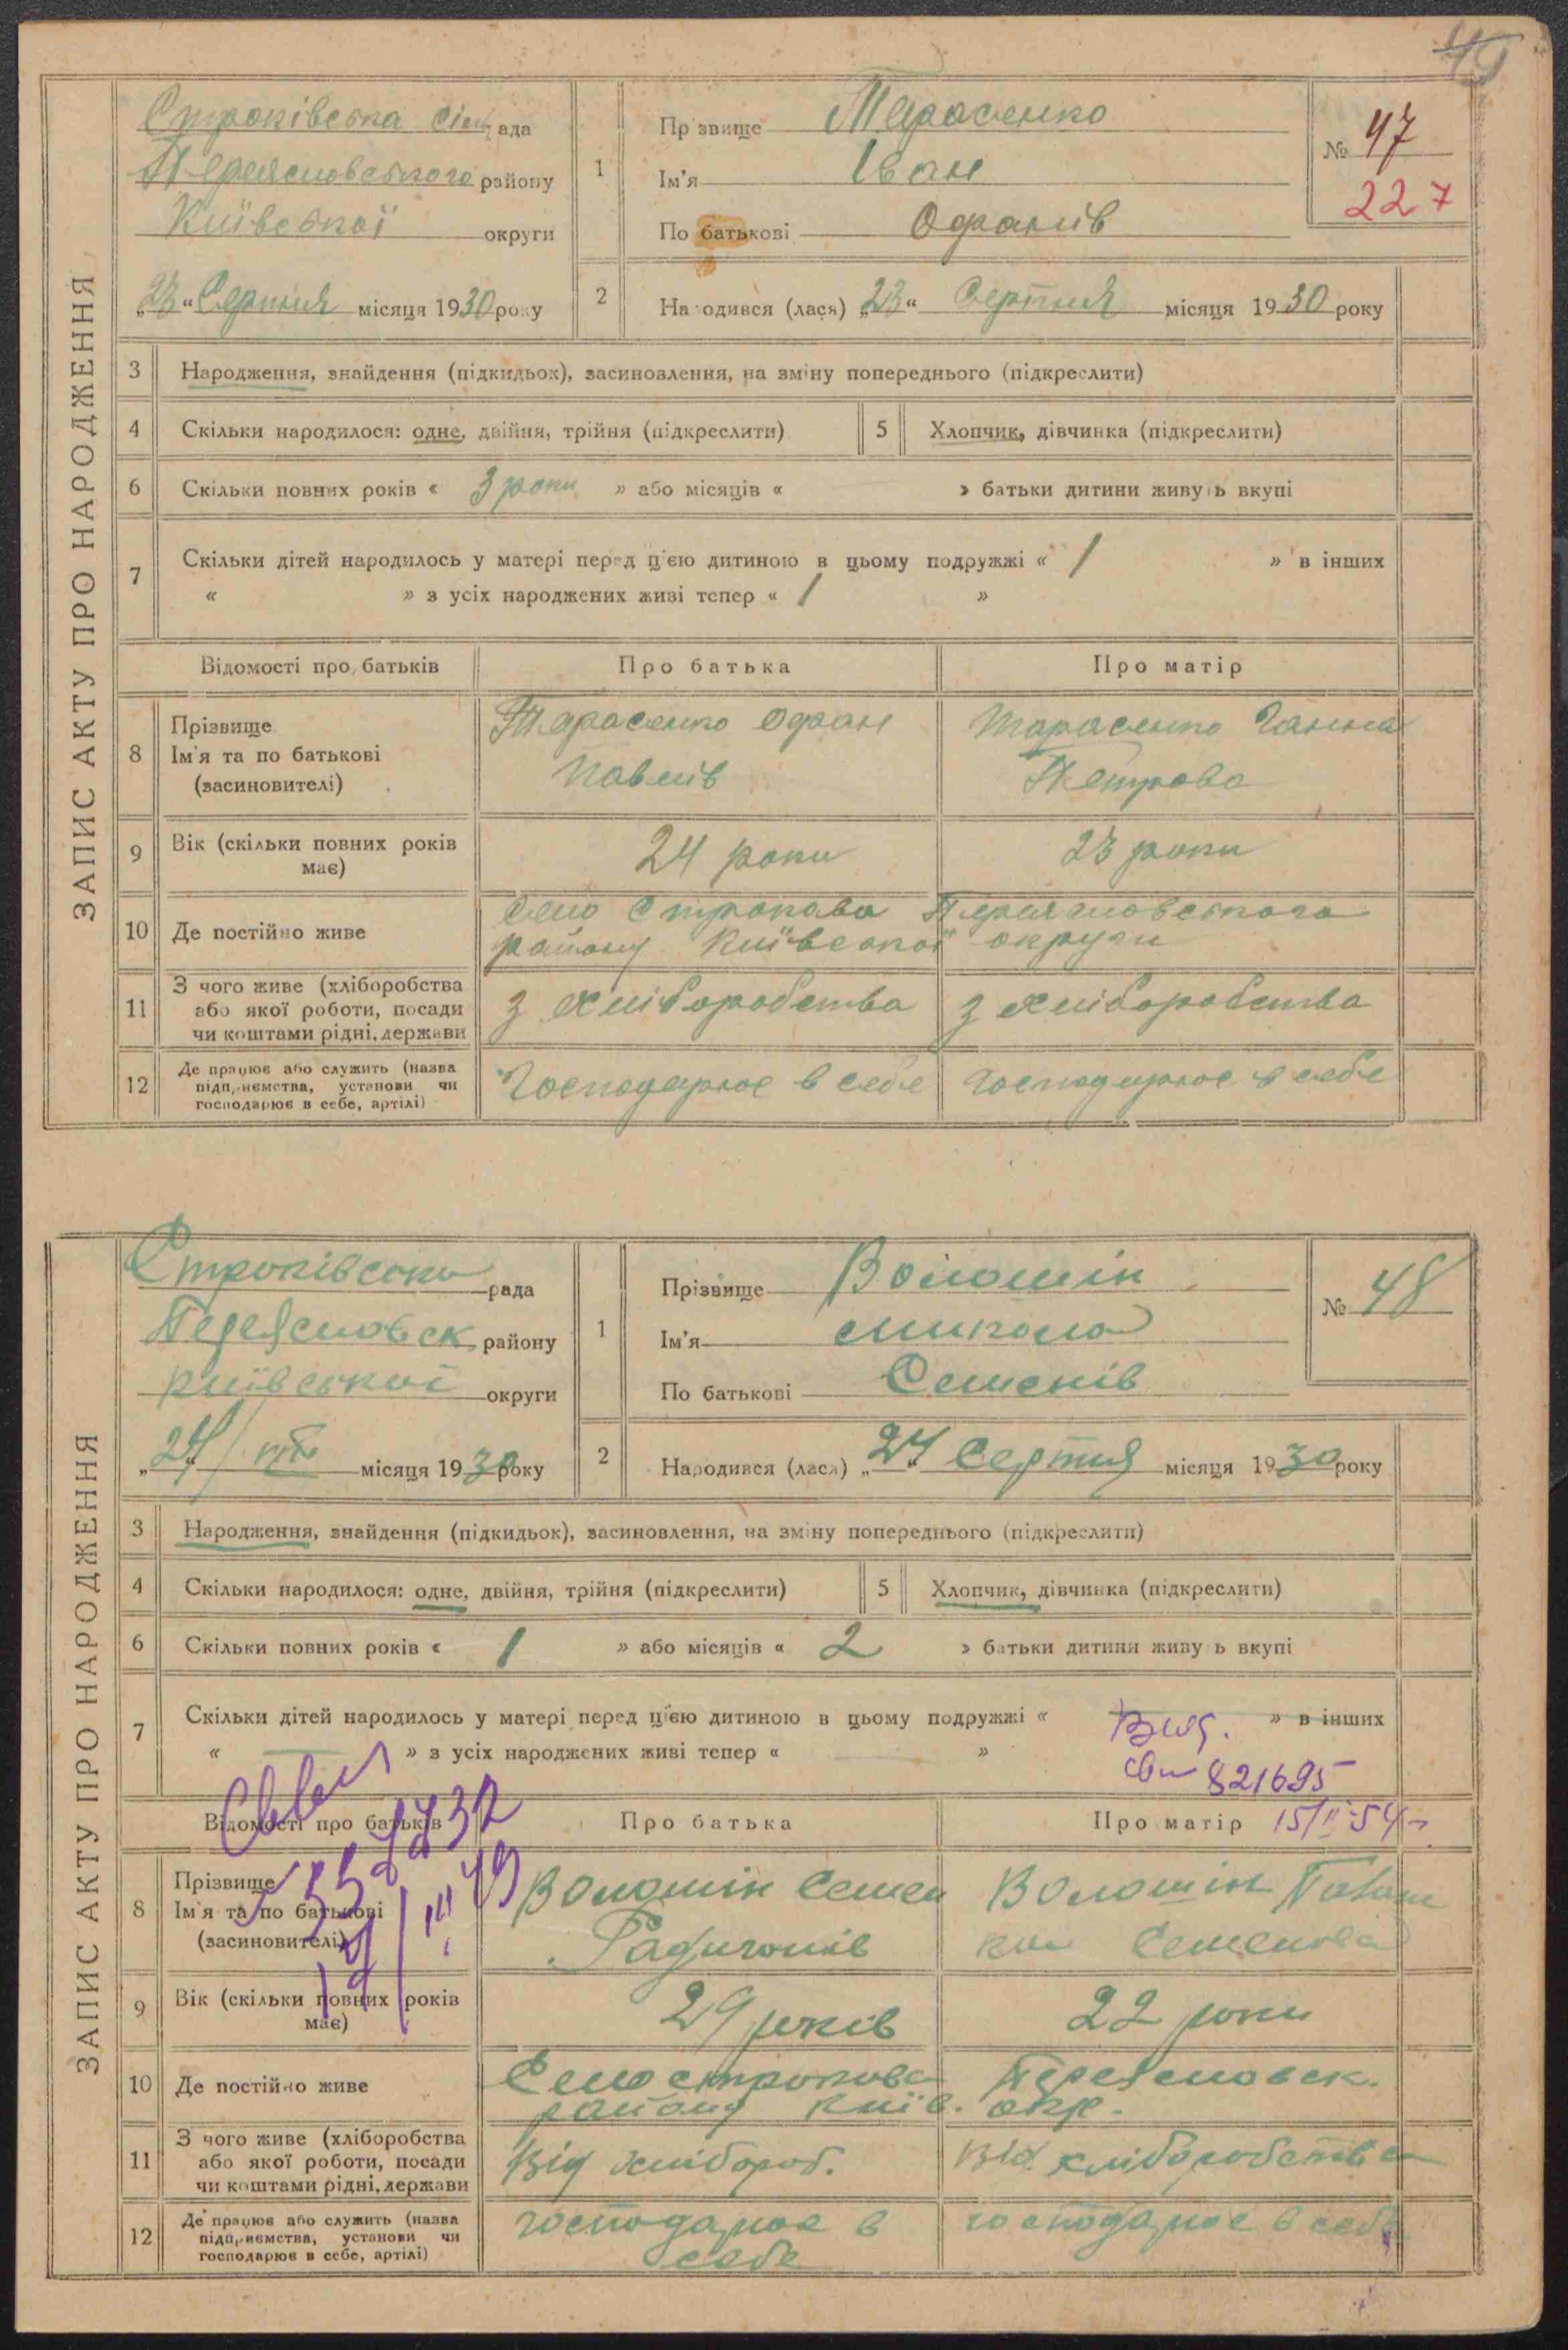 49
ЗАПИС АКТУ ПРО НАРОДЖЕННЯ
Строківська сіл рада
Переяславського району
Київської округи
„23“ Серпня місяця 1930 року
1
Прізвище Тарасенко
Ім'я Іван
По батькові Одранів
№ 47
227
2
Народився (лася) „23“ Серпня місяця 1930 року
3 Народження, знайдення (підкидьок), засиновлення, на зміну попереднього (підкреслити)
4 Скільки народилося: одне, двійня, трійня (підкреслити) 5 Хлопчик, дівчинка (підкреслити)
6 Скільки повних років « 3 роки » або місяців « » батьки дитини живуть вкупі
7 Скільки дітей народилось у матері перед цією дитиною в цьому подружжі « 1 » в інших
« » з усіх народжених живі тепер « 1 »
Відомості про батьків Про батька Про матір
8 Прізвище
Ім'я та по батькові
(засиновителі)
Тарасенко Одран
Павлів
Тарасенко Ганна
Петрова
9 Вік (скільки повних років
має)
24 роки
23 роки
10 Де постійно живе
село Строкова Переяславського
району Київської округи
11 З чого живе (хліборобства
або якої роботи, посади
чи коштами рідні, держави
з хліборобства
з хліборобства
12 Де працює або служить (назва
підприємства, установи чи
господарює в себе, артілі)
Господарює в себе
господарює в себе
ЗАПИС АКТУ ПРО НАРОДЖЕННЯ
Строківська рада
Переяславск району
київської округи
„24 місяця 1930 року
1
Прізвище Волошін
Ім'я микола
По батькові Семенів
№ 48
2
Народився (лася) „24 Серпня місяця 1930 року
3 Народження, знайдення (підкидьок), засиновлення, на зміну попереднього (підкреслити)
4 Скільки народилося: одне, двійня, трійня (підкреслити) 5 Хлопчик, дівчинка (підкреслити)
6 Скільки повних років « 1 » або місяців « 2 » батьки дитини живуть вкупі
7 Скільки дітей народилось у матері перед цією дитиною в цьому подружжі « » в інших
« » з усіх народжених живі тепер « »
821695
15/II-54
Відомості про батьків Про батька Про матір
8 Прізвище
Ім'я та по батькові
(засиновителі)
Волошін Семен
Волошін
Семенова
9 Вік (скільки повних років
має)
29 років
22 роки
10 Де постійно живе
Село строкова Переяславск.
району київ. окр.
11 З чого живе (хліборобства
або якої роботи, посади
чи коштами рідні, держави
Від хлібороб.
Від хліборобства
12 Де працює або служить (назва
підприємства, установи чи
господарює в себе, артілі)
господарює в
себе
господарює в себе